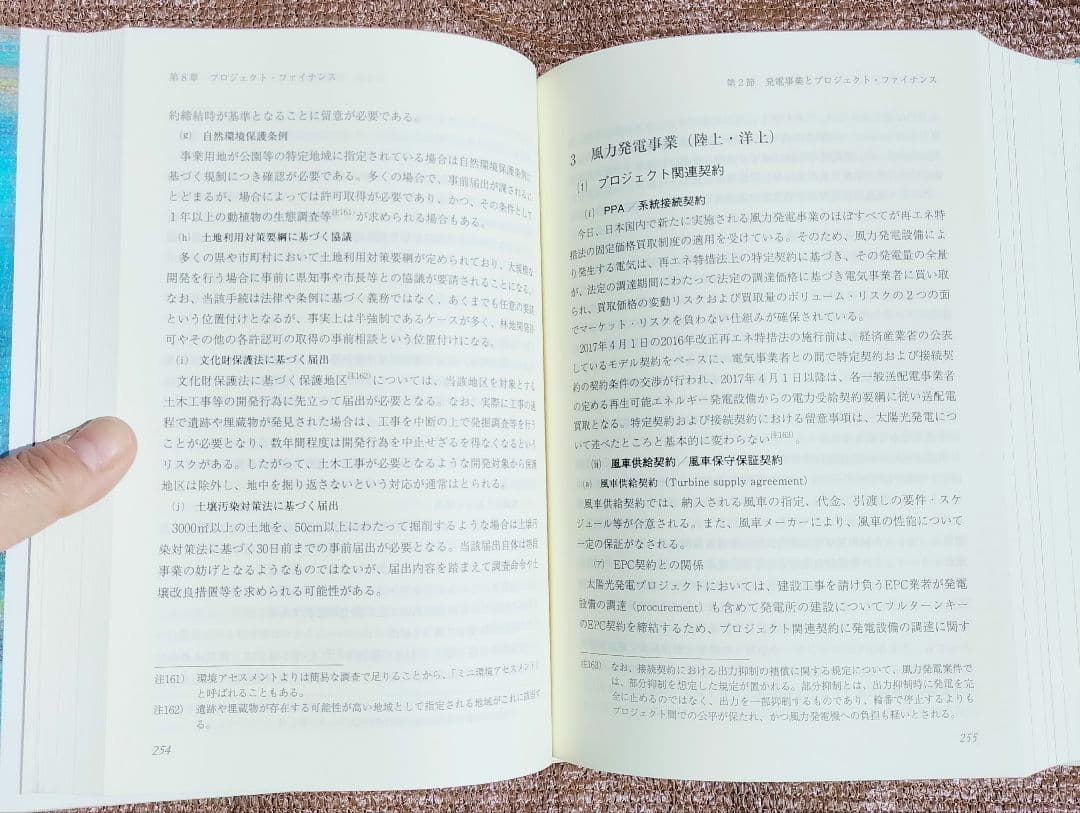 第8章　プロジェクト・ファイナンス
約締結時が基準となることに留意が必要である。
(g) 自然環境保護条例
事業用地が公園等の特定地域に指定されている場合は自然環境保護条例に
基づく規制につき確認が必要である。多くの場合で、事前届出が課されるに
とどまるが、場合によっては許可取得が必要であり、かつ、その条件として
1年以上の動植物の生態調査等(注161)が求められる場合もある。
(h) 土地利用対策要綱に基づく協議
多くの県や市町村において土地利用対策要綱が定められており、大規模な
開発を行う場合に事前に県知事や市長等との協議が要請されることになる。
なお、当該手続は法律や条例に基づく義務ではなく、あくまでも任意の要請
という位置付けとなるが、事実上は半強制であるケースが多く、林地開発許
可やその他の各許認可の取得の事前相談という位置付けになる。
(i) 文化財保護法に基づく届出
文化財保護法に基づく保護地区(注162)については、当該地区を対象とする
土木工事等の開発行為に先立って届出が必要となる。なお、実際に工事の過
程で遺跡や埋蔵物が発見された場合は、工事を中断の上で発掘調査等を行う
ことが必要となり、数年間程度は開発行為を中止せざるを得なくなるという
リスクがある。したがって、土木工事が必要となるような開発対象から保護
地区は除外し、地中を掘り返さないという対応が通常はとられる。
(j) 土壌汚染対策法に基づく届出
3000㎡以上の土地を、50cm以上にわたって掘削するような場合は土壌汚
染対策法に基づく30日前までの事前届出が必要となる。当該届出自体は
事業の妨げとなるようなものではないが、届出内容を踏まえて調査命令や土
壌改良措置等を求められる可能性がある。
注161) 環境アセスメントよりは簡易な調査で足りることから、「ミニ環境アセスメント」
と呼ばれることもある。
注162) 遺跡や埋蔵物が存在する可能性が高い地域として指定される地域がこれに該当す
る。
254
第2節　発電事業とプロジェクト・ファイナンス
3　風力発電事業（陸上・洋上）
(1) プロジェクト関連契約
(i) PPA／系統接続契約
今日、日本国内で新たに実施される風力発電事業のほぼすべてが再エネ特
措法の固定価格買取制度の適用を受けている。そのため、風力発電設備によ
り発生する電気は、再エネ特措法上の特定契約に基づき、その発電量の全量
が、法定の調達期間にわたって法定の調達価格に基づき電気事業者に買い取
られ、買取価格の変動リスクおよび買取量のボリューム・リスクの2つの面
でマーケット・リスクを負わない仕組みが確保されている。
2017年4月1日の2016年改正再エネ特措法の施行前は、経済産業省の公表
しているモデル契約をベースに、電気事業者との間で特定契約および接続契
約の契約条件の交渉が行われ、2017年4月1日以降は、各一般送配電事業者
の定める再生可能エネルギー発電設備からの電力受給契約要綱に従い送配電
買取となる。特定契約および接続契約における留意事項は、太陽光発電につ
いて述べたところと基本的に変わらない(注163)。
(ii) 風車供給契約／風車保守保証契約
(a) 風車供給契約（Turbine supply agreement）
風車供給契約では、納入される風車の指定、代金、引渡しの要件・スケ
ジュール等が合意される。また、風車メーカーにより、風車の性能について
一定の保証がなされる。
(ア) EPC契約との関係
太陽光発電プロジェクトにおいては、建設工事を請け負うEPC業者が発電
設備の調達（procurement）も含めて発電所の建設についてフルターンキー
のEPC契約を締結するため、プロジェクト関連契約に発電設備の調達に関す
注163) なお、接続契約における出力抑制の補償に関する規定について、風力発電案件で
は、部分抑制を想定した規定が置かれる。部分抑制とは、出力抑制時に発電を完
全に止めるのではなく、出力を一部抑制するものであり、輪番で停止するよりも
プロジェクト間での公平が保たれ、かつ風力発電機への負担も軽いとされる。
255